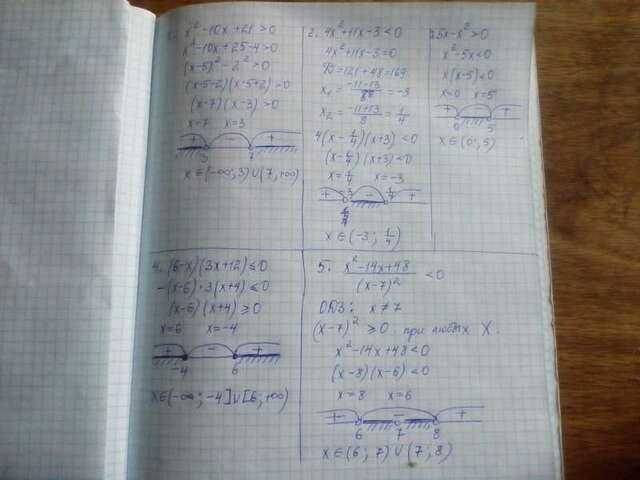 1. x² - 10x + 21 > 0
x² - 10x + 25 - 4 > 0
(x-5)² - 2² > 0
(x-5-2)(x-5+2) > 0
(x-7)(x-3) > 0
x=7 x=3
+ - +
3 7
x ∈ (-∞; 3) ∪ (7; +∞)
2. 4x² + 11x - 3 < 0
4x² + 11x - 3 = 0
D = 121 + 48 = 169
x₁ = (-11-13)/8 = -3
x₂ = (-11+13)/8 = 1/4
4(x - 1/4)(x+3) < 0
(x - 1/4)(x+3) < 0
x = 1/4 x = -3
+ -3 - 1/4 +
x ∈ (-3; 1/4)
5x - x² > 0
x² - 5x < 0
x(x-5) < 0
x=0 x=5
+ - +
0 5
x ∈ (0; 5)
4. (6-x)(3x+12) ≤ 0
-(x-6)·3(x+4) ≤ 0
(x-6)(x+4) ≥ 0
x=6 x=-4
+ - +
-4 6
x ∈ (-∞; -4] ∪ [6; +∞)
5. (x² - 14x + 48)/(x-7)² < 0
ОДЗ: x ≠ 7
(x-7)² ≥ 0 при любых x.
x² - 14x + 48 < 0
(x-8)(x-6) < 0
x=8 x=6
+ - +
6 7 8
x ∈ (6; 7) ∪ (7; 8)